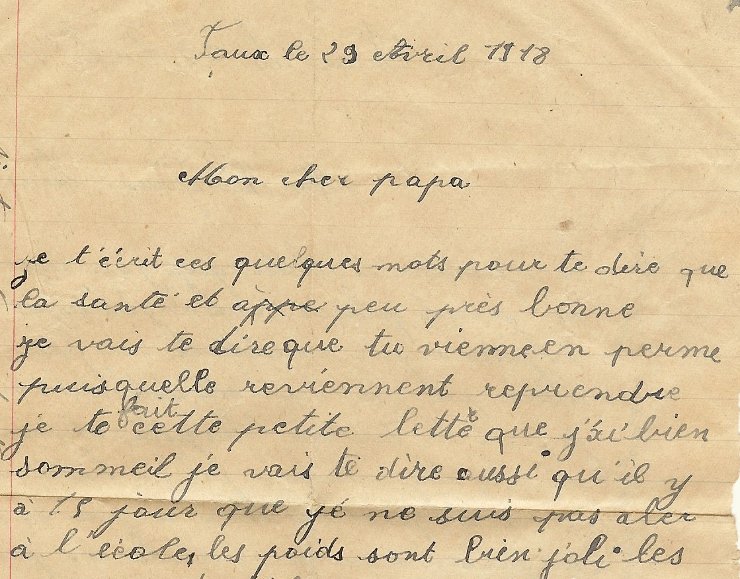 Faux le 29 Avril 1918
Mon cher papa
je t'écrit ces quelques mots pour te dire que
la santé et à peu près bonne
je vais te dire que tu vienne en perme
puisquelle reviennent reprendre
fait
je te cette petite lettre que j'ai bien
sommeil je vais te dire aussi qu'il y
à 15 jour que je ne suis pas aler
à l'école, les poids sont bien joli les